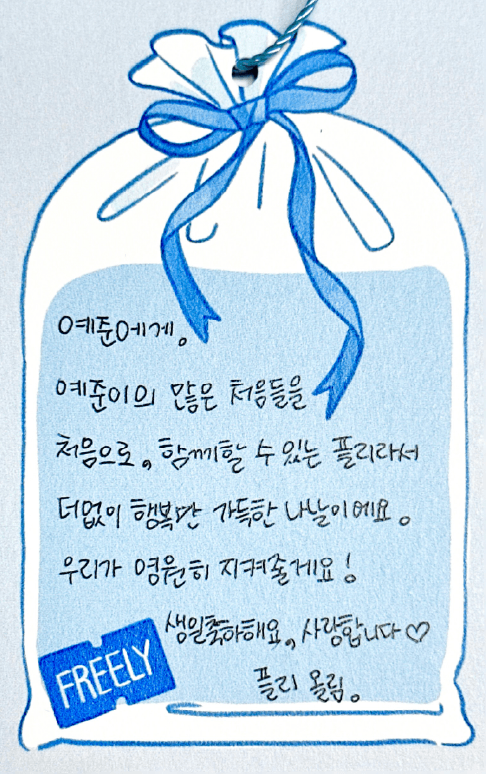 예준에게。
예준이의 많은 처음들을
처음으로。함께할 수 있는 플리라서
더없이 행복만 가득한 나날이에요。
우리가 영원히 지켜줄게요!
생일축하해요。사랑합니다♡
FREELY
플리 올림。